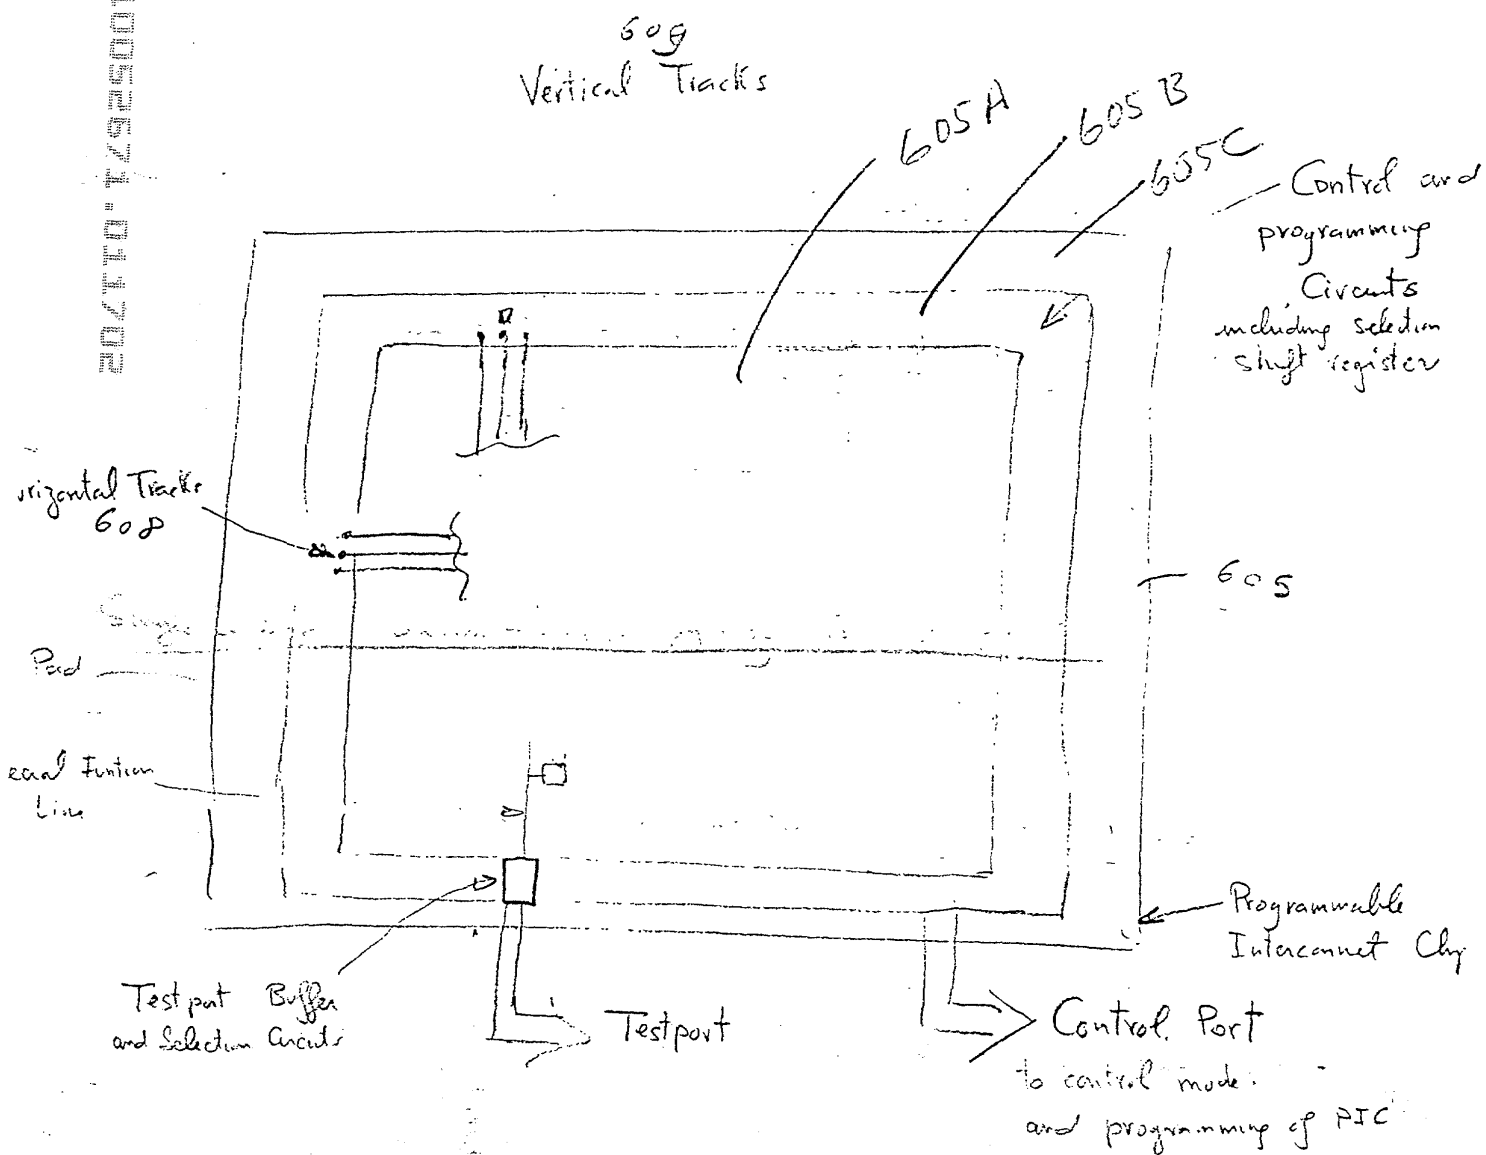 609
Vertical Tracks
605A
605B
605C
Control and
programming
Circuits
including selection
shift register
10052671.011702
orizontal Tracks
608
605
Pad
Line
Programmable
Interconnect Chip
Testport Buffer
and Selection Circuits
Testport
Control Port
to control mode
and programming of PIC